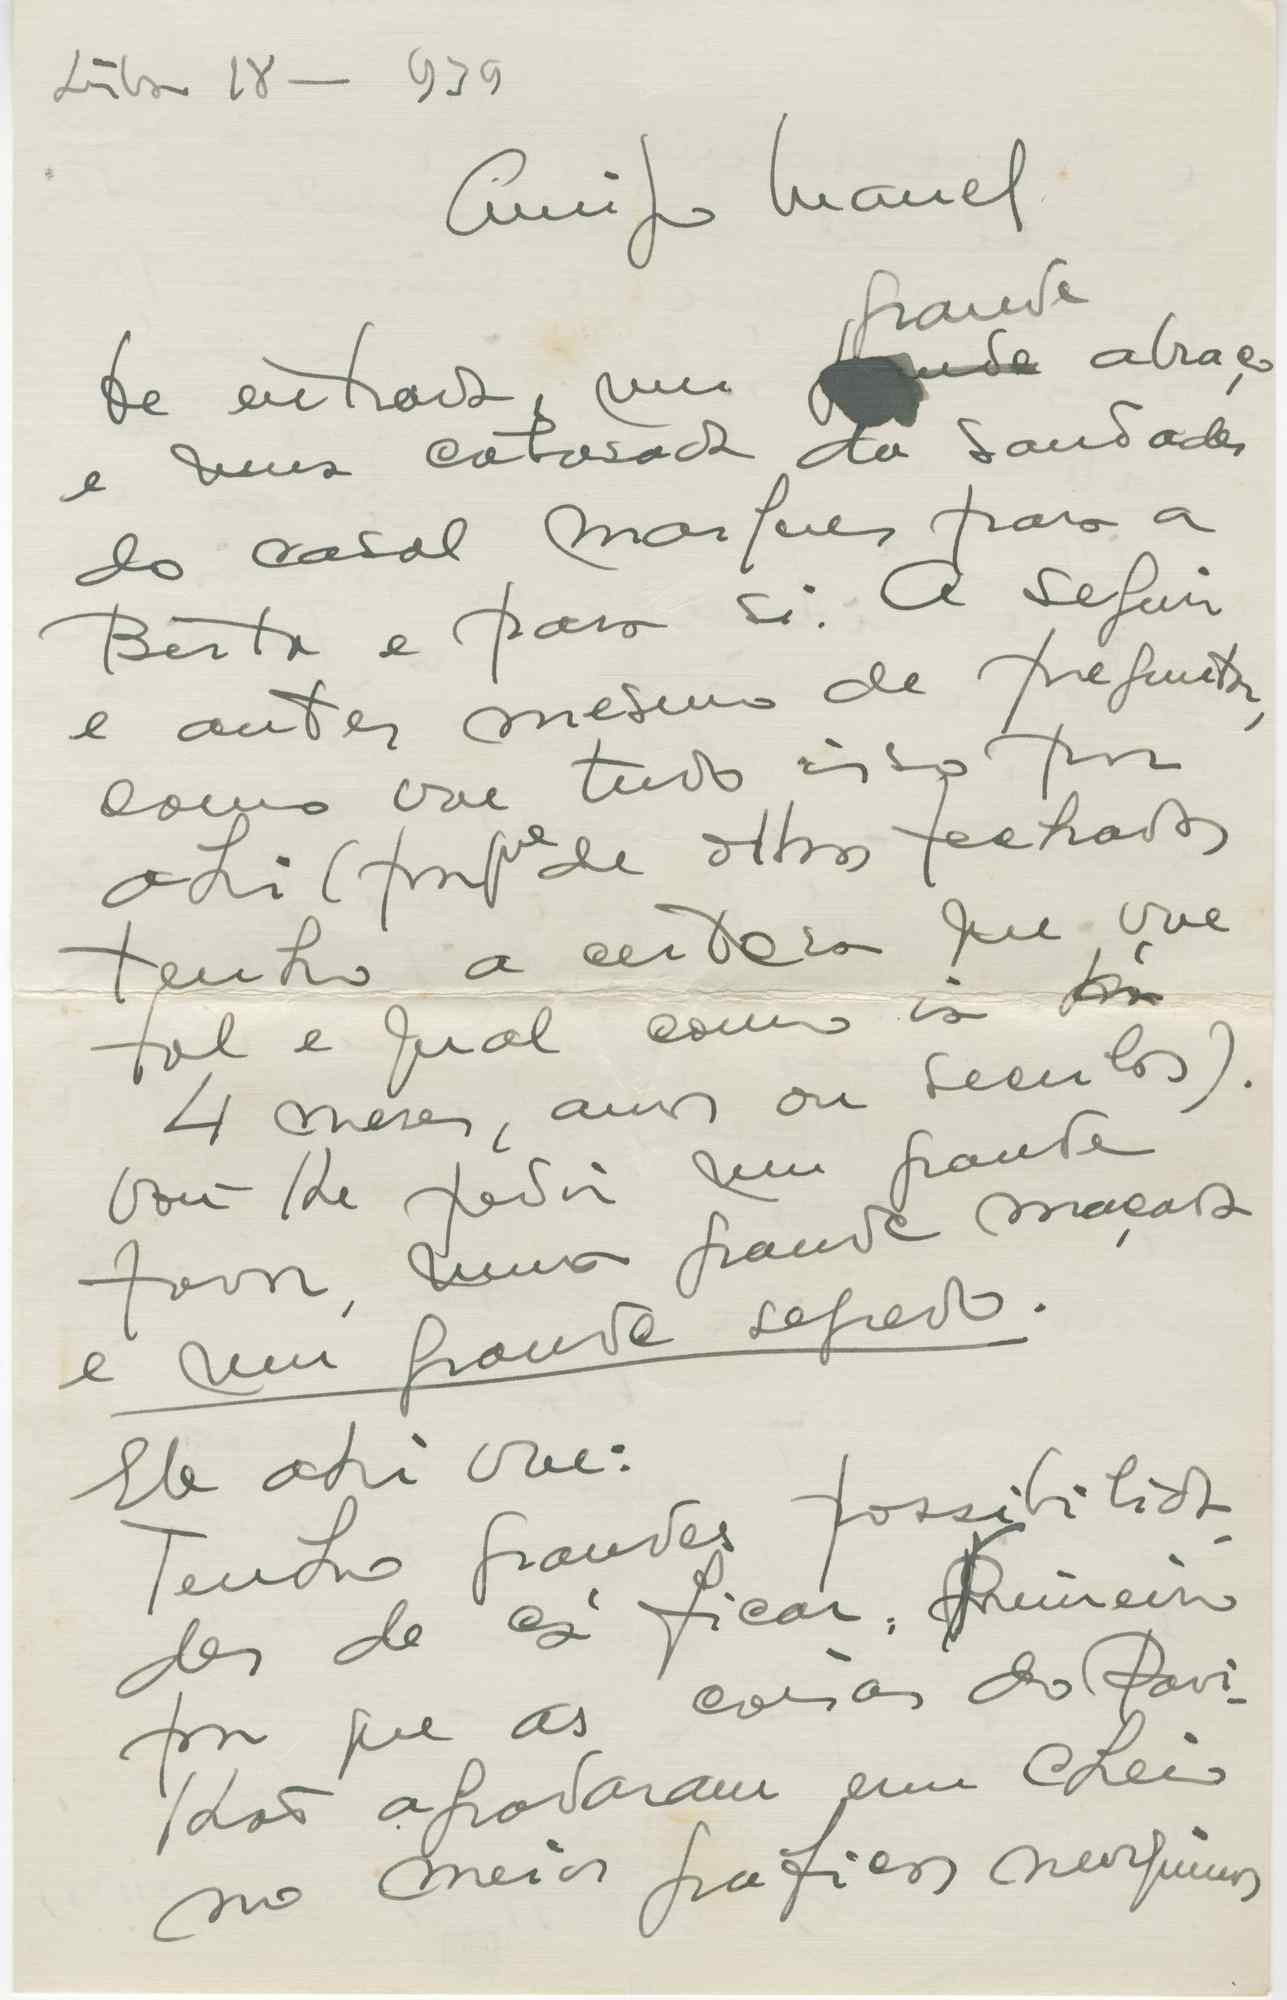 Lisboa 18 — 939
Amigo Manuel
grande
de entrada, um grande abraço
e uma catrosada de saudades
do casal Marques para a
Berta e para si. A seguir
e antes mesmo de preguntar,
como vae tudo isso por
ahi (porqᵘᵉ de olhos fechados
tenho a certeza que vae
tal e qual como ia há
4 meses, anos ou seculos).
vou-lhe pedir um grande
favor, uma grande maçada
e um grande segredo.
Ele ahi vae:
Tenho grandes possibilida-
des de cá ficar. Primeiro
por que as coisas do Pavi-
lhão agradaram em cheio
no meio grafico neorquino